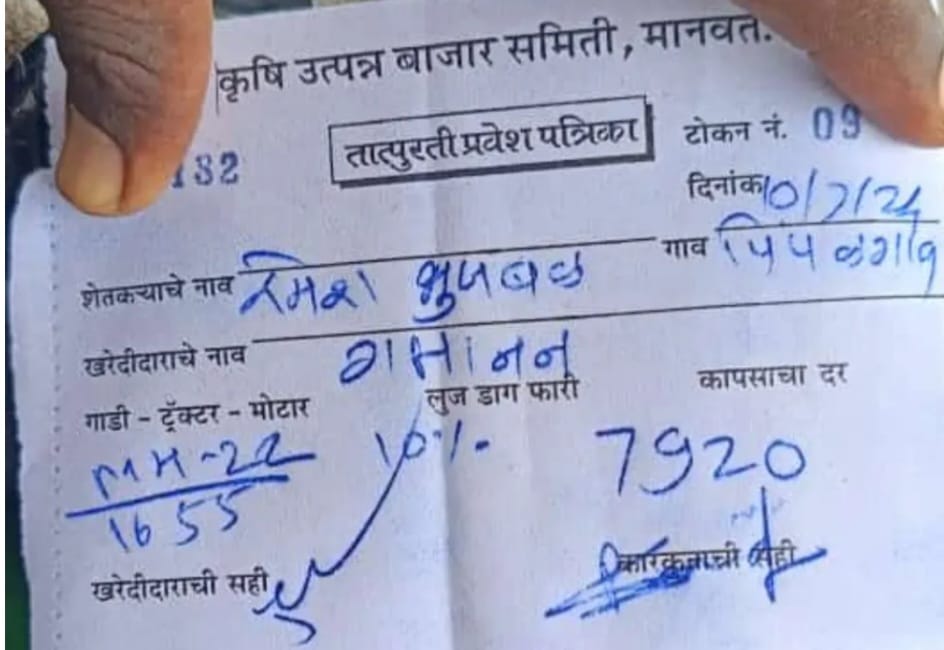 कृषि उत्पन्न बाजार समिती, मानवत.
तात्पुरती प्रवेश पत्रिका
टोकन नं. 09
132
दिनांक 10/7/24
शेतकऱ्याचे नाव रमेश भुजबळ गाव पिंपळगाव
खरेदीदाराचे नाव गजानन
गाडी - ट्रॅक्टर - मोटार लुज डाग फारी कापसाचा दर
MH-22 10%. 7920
1655
खरेदीदाराची सही कारकुनाची सही